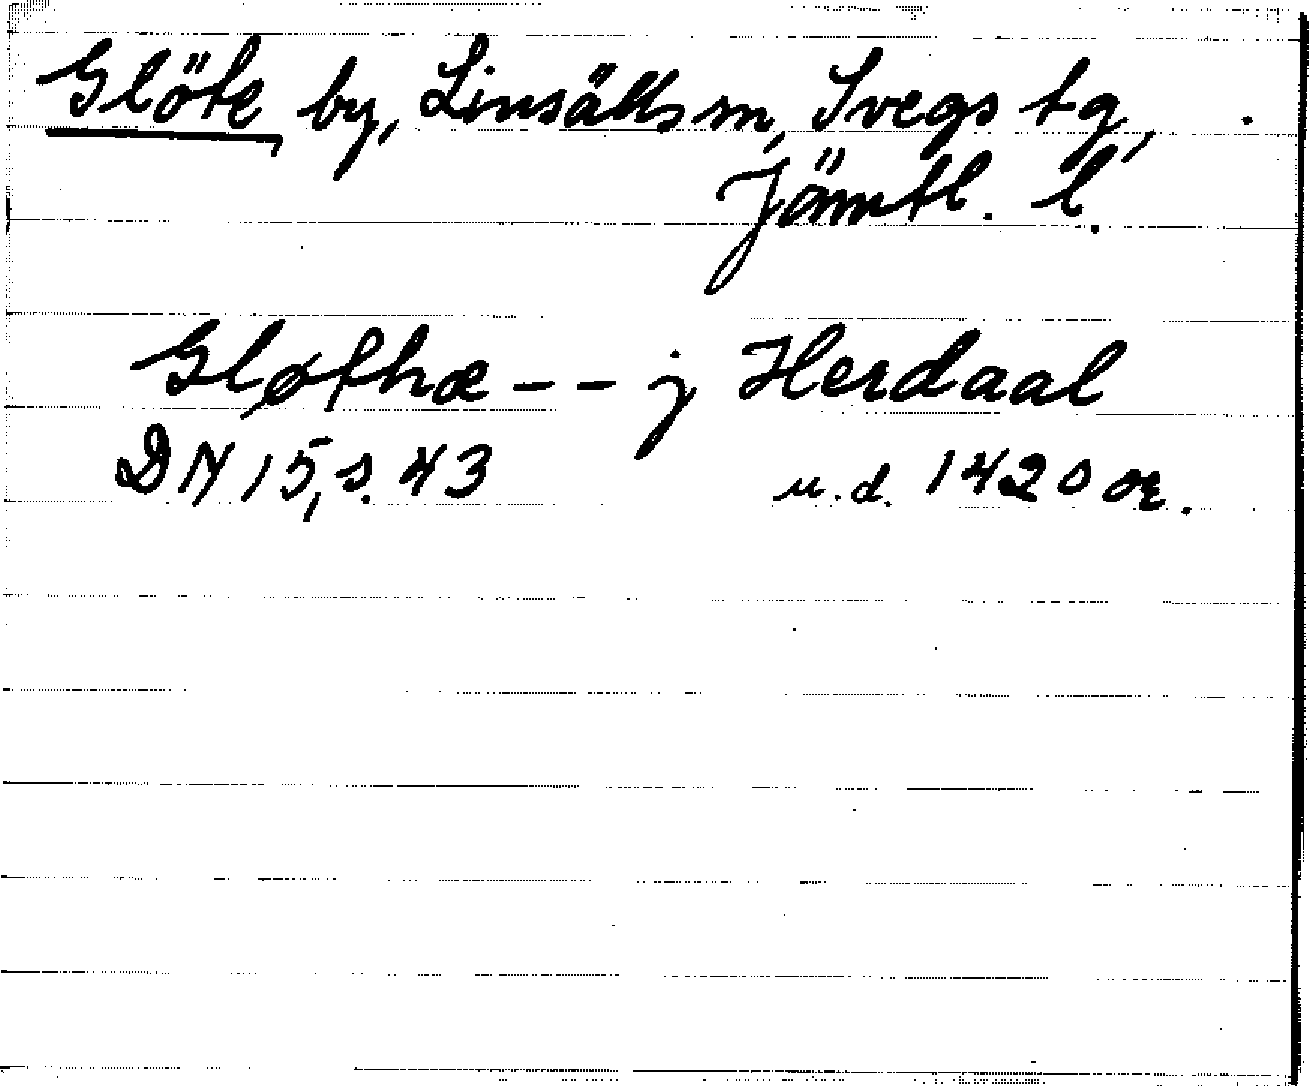 Glöte by, Linsälls sn, Svegs tg,
Jämtl. l.
Gløthæ - - j Herdaal
DN 15, s. 43 u.d. 1420 or.